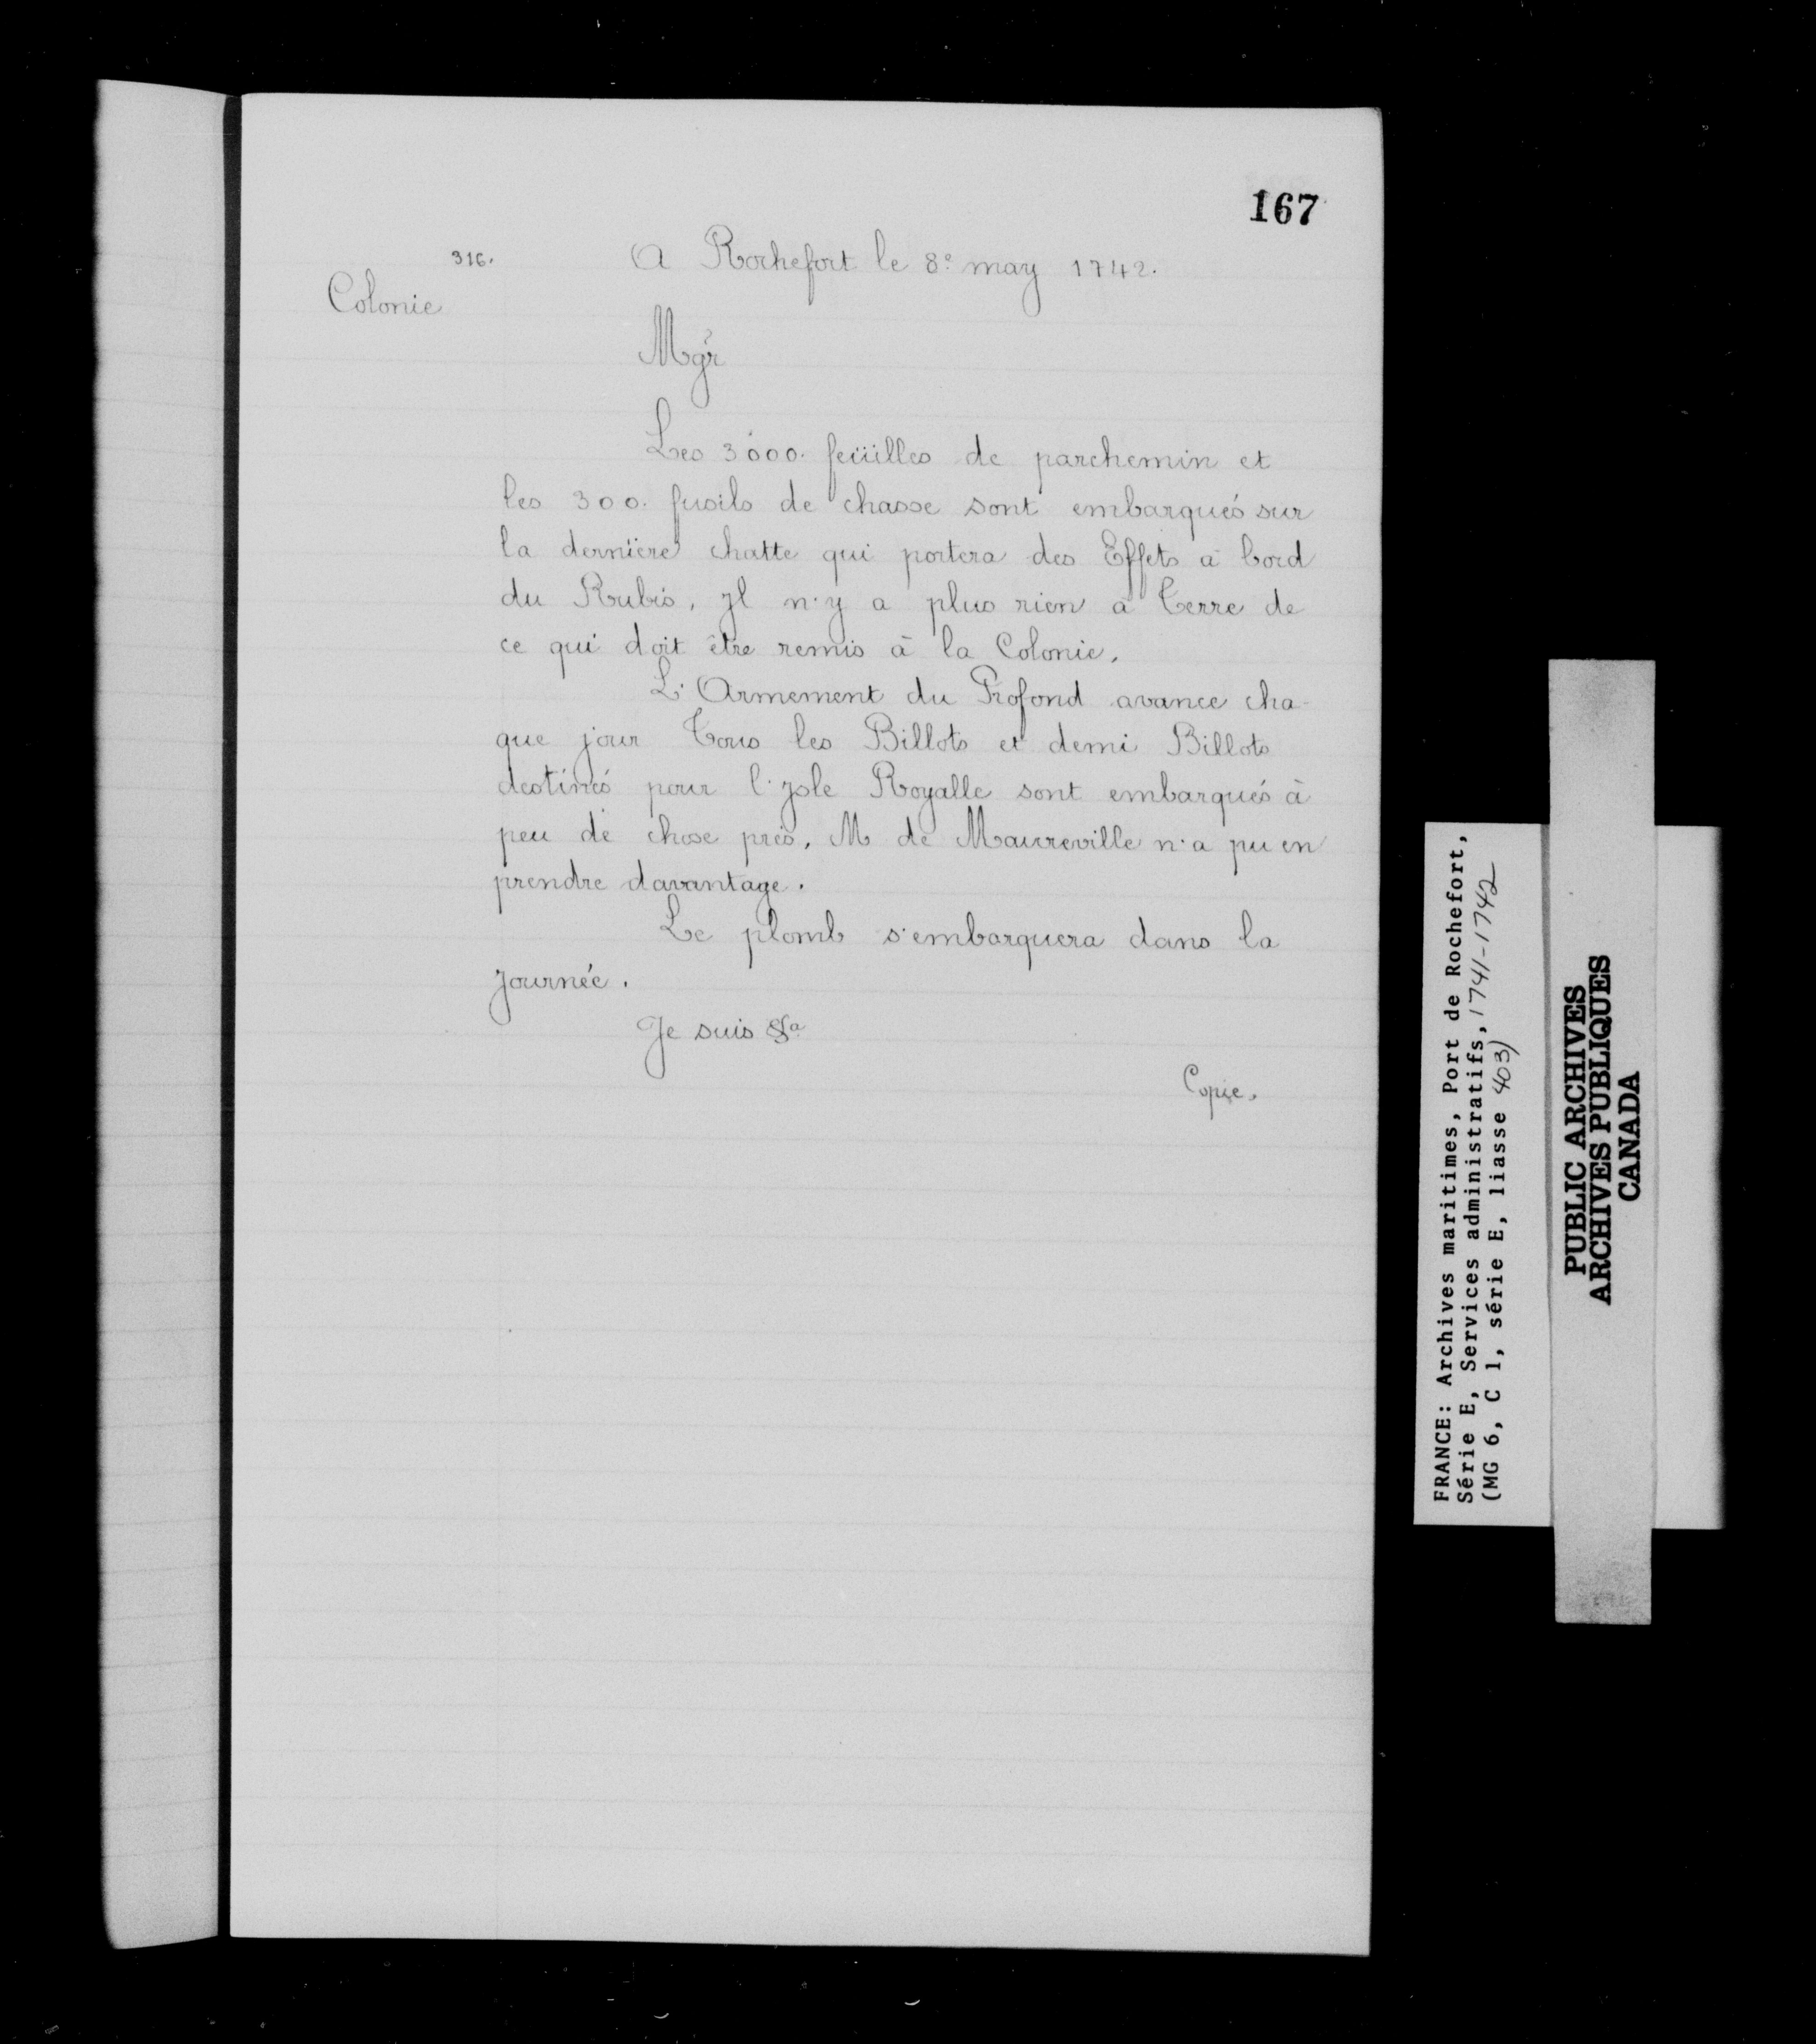 167
316.
A Rochefort le 8.e may 1742.
Colonie
Mgr
Les 3000. feüilles de parchemin et
les 300. fusils de chasse sont embarqués sur
la derniere chatte qui portera des Effets à bord
du Rubis, Jl n'y a plus rien à Terre de
ce qui doit être remis à la Colonie.
L'Armement du Profond avance cha-
que jour Tous les Billots et demi Billots
destinés pour l'Jsle Royalle sont embarqués à
peu de chose prés. M de Maureville n'a pu en
prendre davantage.
Le plomb s'embarquera dans la
Journée.
Je suis &a
Copie.
FRANCE: Archives maritimes, Port de Rochefort,
Série E, Services administratifs, 1741-1742
(MG 6, C 1, série E, liasse 403)
PUBLIC ARCHIVES
ARCHIVES PUBLIQUES
CANADA